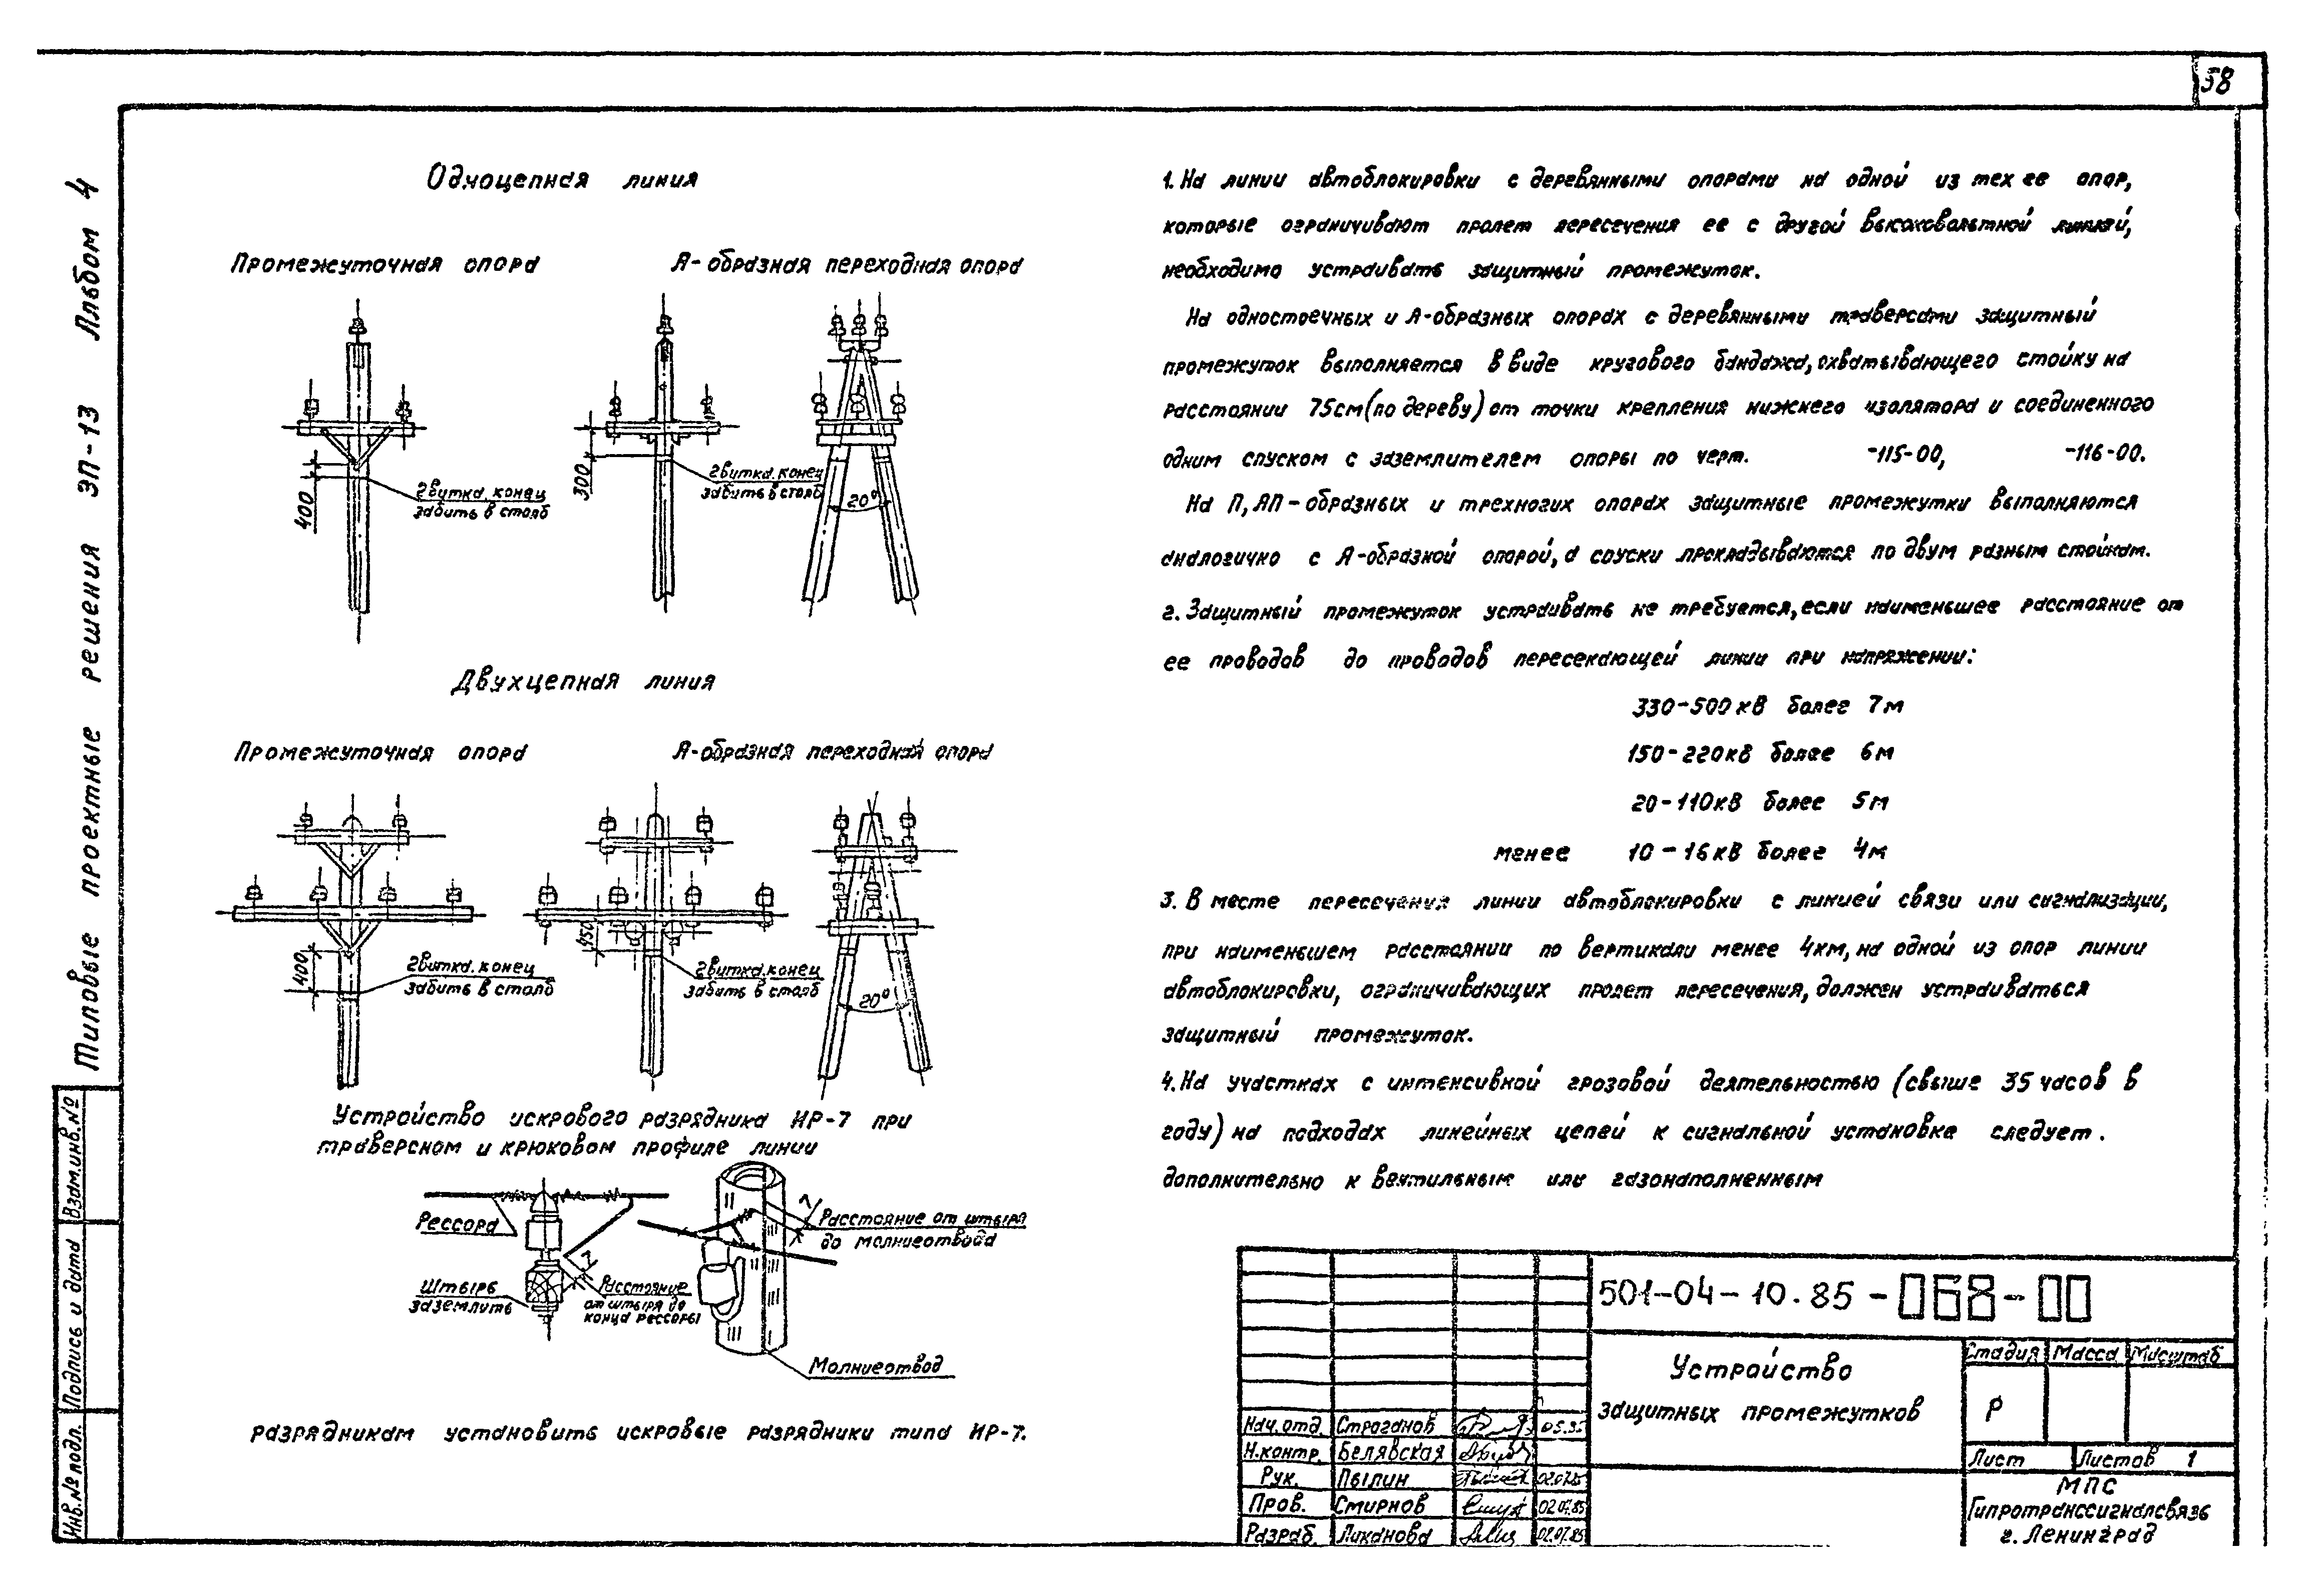 58
Типовые проектные решения ЭП-13 Альбом 4
Одноцепная линия
Промежуточная опора
А-образная переходная опора
400
2 витка, конец
забить в столб
300
2 витка, конец
забить в столб
20°
Двухцепная линия
Промежуточная опора
А-образная переходная опора
400
2 витка, конец
забить в столб
450
2 витка, конец
забить в столб
20°
Устройство искрового разрядника ИР-7 при
траверсном и крюковом профиле линии
Рессора
Штырь
заземлить
2
Расстояние
от штыря до
конца рессоры
2
Расстояние от штыря
до молниеотвода
Молниеотвод
разрядникам установить искровые разрядники типа ИР-7.
1. На линии автоблокировки с деревянными опорами на одной из тех ее опор,
которые ограничивают пролет пересечения ее с другой высоковольтной линией,
необходимо устраивать защитный промежуток.
На одностоечных и А-образных опорах с деревянными траверсами защитный
промежуток выполняется в виде кругового бандажа, охватывающего стойку на
расстоянии 75см (по дереву) от точки крепления нижнего изолятора и соединенного
одним спуском с заземлителем опоры по черт. -115-00, -116-00.
На П, АП-образных и трехногих опорах защитные промежутки выполняются
аналогично с А-образной опорой, а спуски прокладываются по двум разным стойкам.
2. Защитный промежуток устраивать не требуется, если наименьшее расстояние от
ее проводов до проводов пересекающей линии при напряжении:
330-500кВ более 7м
150-220кВ более 6м
20-110кВ более 5м
менее 10-16кВ более 4м
3. В месте пересечения линии автоблокировки с линией связи или сигнализации,
при наименьшем расстоянии по вертикали менее 4км, на одной из опор линии
автоблокировки, ограничивающих пролет пересечения, должен устраиваться
защитный промежуток.
4. На участках с интенсивной грозовой деятельностью (свыше 35 часов в
году) на подходах линейных цепей к сигнальной установке следует.
дополнительно к вентильным или газонаполненным
501-04-10.85-068-00
Устройство
защитных промежутков
Стадия Масса Масштаб
Р
Лист Листов 1
МПС
Гипротранссигналсвязь
г. Ленинград
Нач. отд. Строганов
Н.контр. Белявская
Рук. Пылин 02.07.85
Пров. Смирнов 02.07.85
Разраб. Лиханова 02.07.85
Взам.инв.№
Подпись и дата
Инв.№ подл.